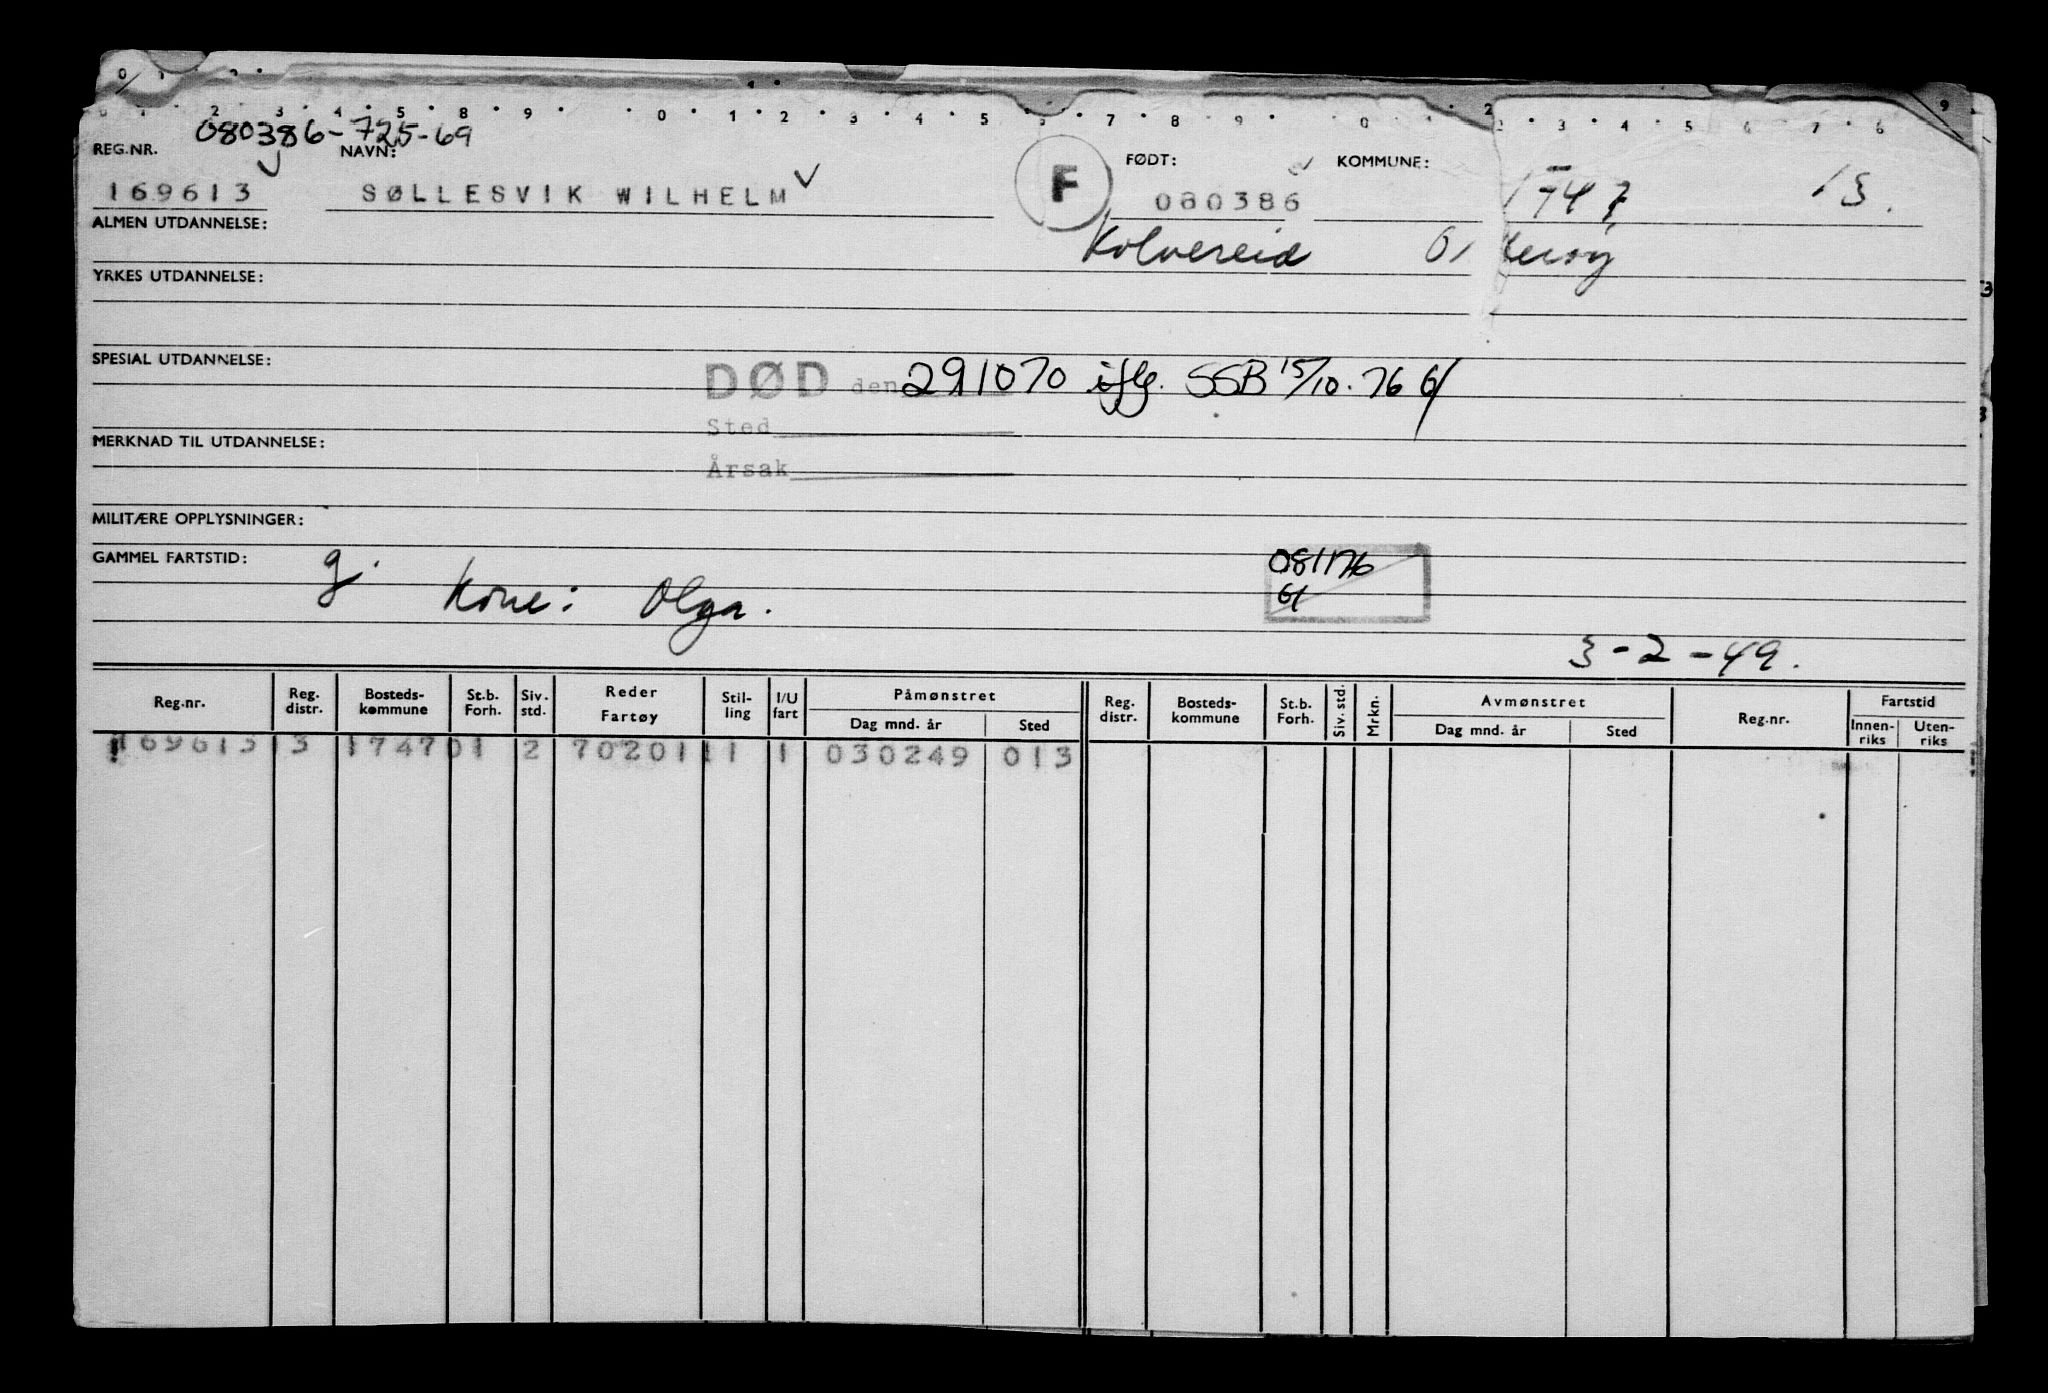 2 3 4 5 8 9 0 1 2 3 4 5 7 8 9 0 2 3 4 5 6 7 6 9
080386-725-69
REG.NR. NAVN: FØDT: KOMMUNE:
169613 SØLLESVIK WILHELM F 080386 1747 13.
ALMEN UTDANNELSE:
Kolvereid
YRKES UTDANNELSE:
SPESIAL UTDANNELSE:
DØD den 291070 iflg. SSB 15/10.76 G/
Sted
MERKNAD TIL UTDANNELSE:
Årsak
MILITÆRE OPPLYSNINGER:
GAMMEL FARTSTID: g. 081176
Kone: Olga. G/
3-2-49.
Reg.nr. Reg. distr. Bosteds-kommune St.b. Forh. Siv. std. Reder Fartøy Stil-ling I/U fart Påmønstret Dag mnd. år Sted Reg. distr. Bosteds-kommune St.b. Forh. Siv. std. Mrkn. Avmønstret Dag mnd. år Sted Reg.nr. Fartstid Innen-riks Uten-riks
169613 3 1747 01 2 702011 1 1 030249 013